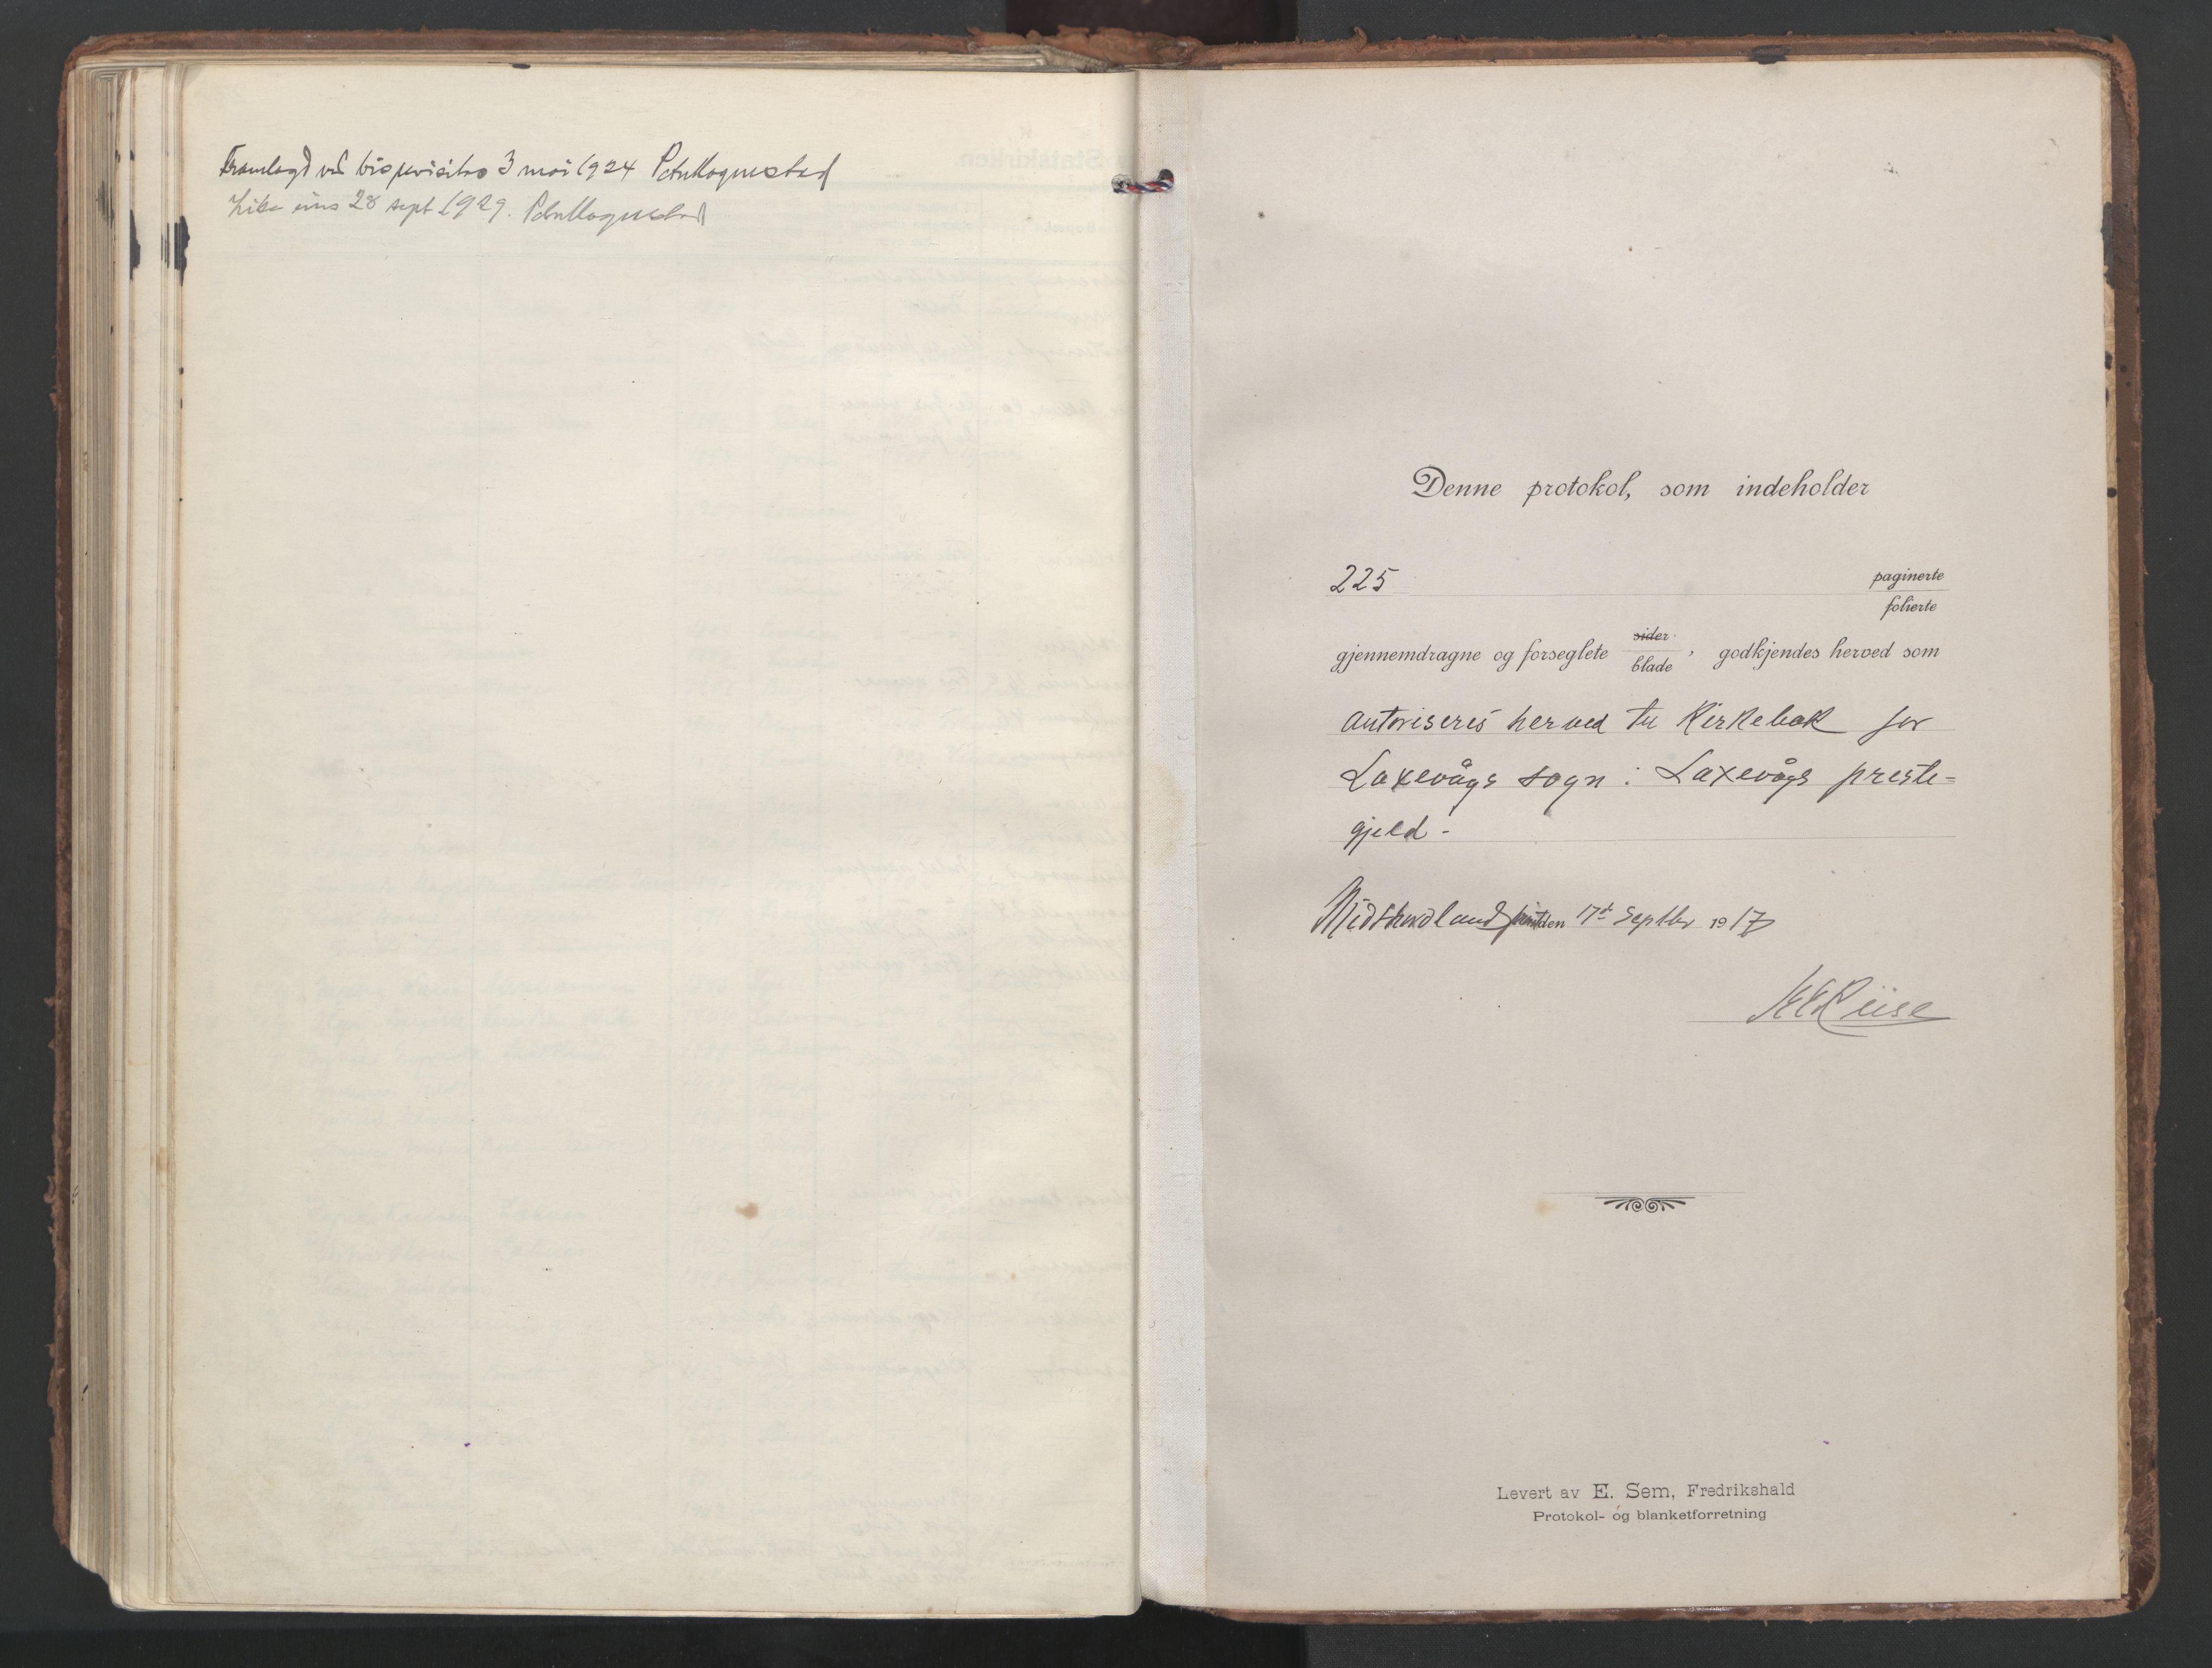 Framlagd ved bispevisitas 3 mai 1924 Pet. Hognestad
Like eins 28 sept 1929. Pet. Hognestad
Denne protokol, som indeholder
225 paginerte
folierte
gjennemdragne og forseglete sider blade, godkjendes herved som
autoriseres herved til Kirkebok for
Laxevågs sogn i Laxevågs preste-
gjeld -
Midthordland den 17de Septbr 1917
Riise
Levert av E. Sem, Fredrikshald
Protokol- og blanketforretning